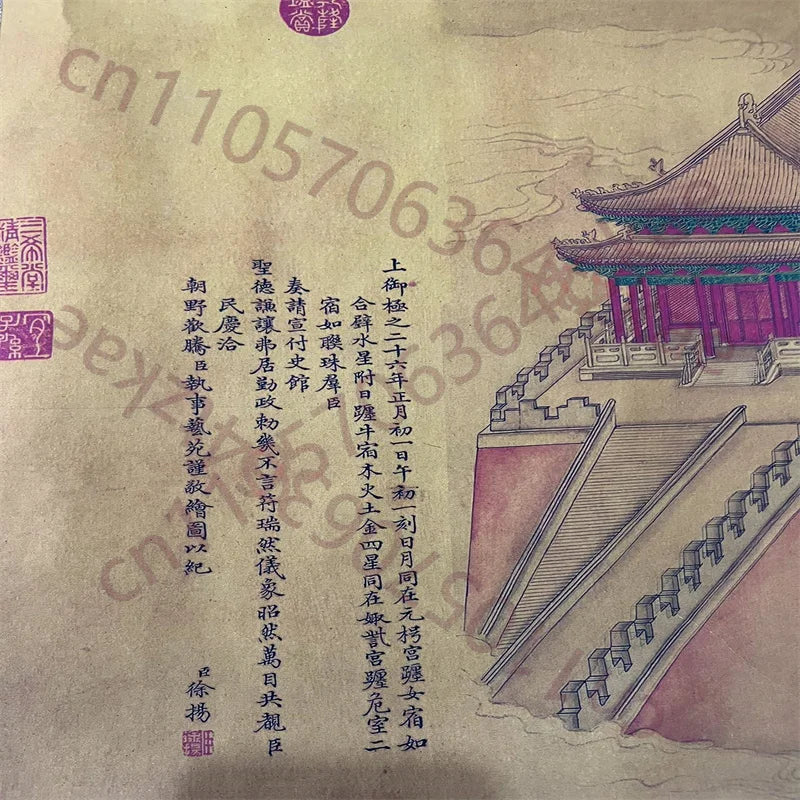 上御極之二十六年正月初一日午初一刻日月同在元枵宮躔女宿如
合璧水星附日躔牛宿木火土金四星同在娵訾宮躔危室二
宿如聯珠羣臣
奏請宣付史館
聖德謙讓弗居勤政勅幾不言符瑞然儀象昭然萬目共覩臣
民慶洽
朝野歡騰臣執事藝苑謹敬繪圖以紀
臣徐揚
三希堂
精鑑璽
宜子孫
cn110570636